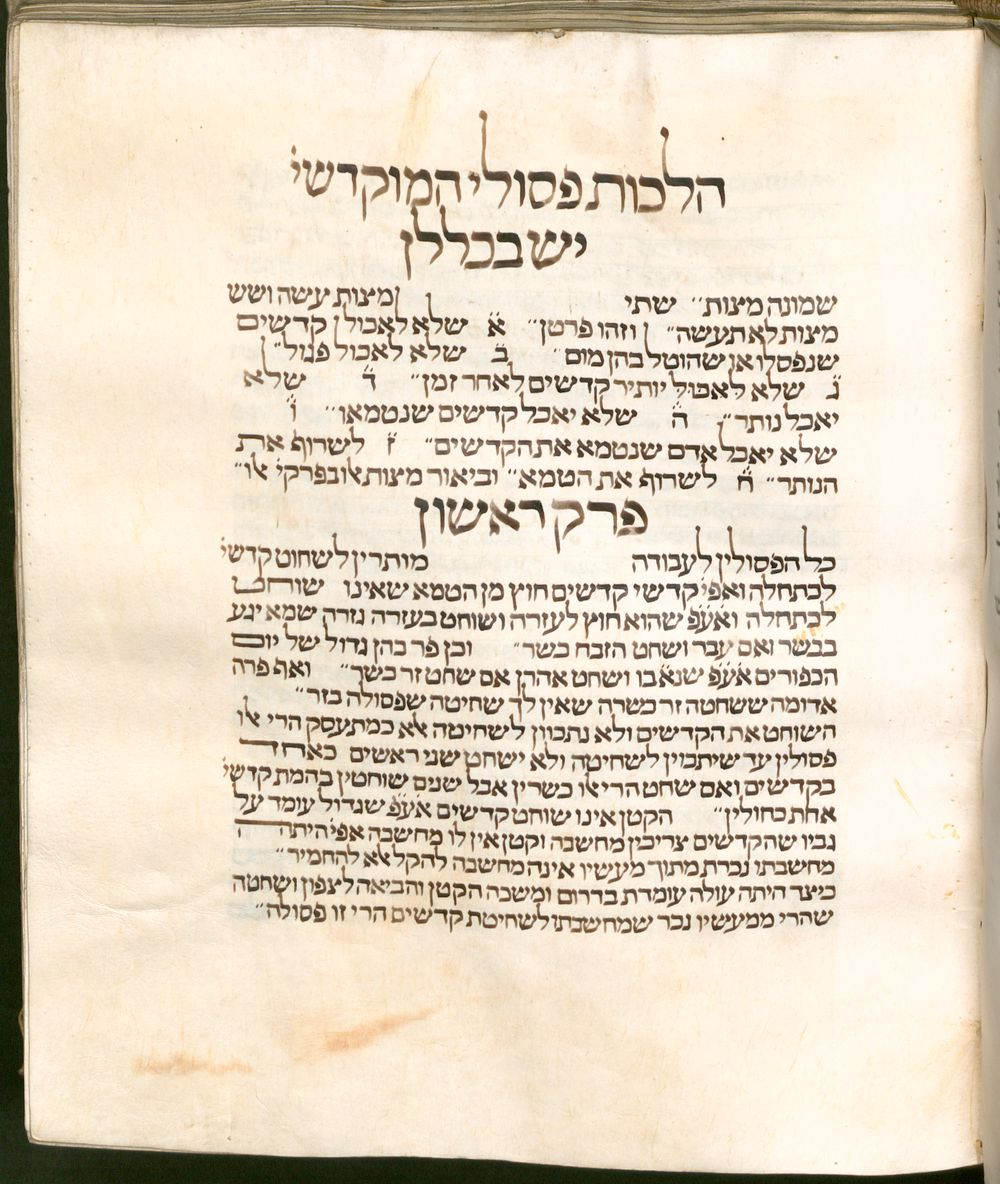 הלכות פסולי המוקדשי׳
יש בכללן
שמונה מצות״ שתי מצות עשה ושש
מצות לא תעשה״ וזהו פרטן״ א שלא לאכול קדשים
שנפסלו או שהוטל בהן מום״ ב שלא לאכול פגול״
ג שלא לאכול יותיר קדשים לאחר זמן״ ד שלא
יאכל נותר״ ה שלא יאכל קדשים שנטמאו״ ו
שלא יאכל אדם שנטמא את הקדשים״ ז לשרוף את
הנותר״ ח לשרוף את הטמא״ וביאור מצות אלו בפרקי׳ אלו״
פרק ראשון
כל הפסולין לעבודה מותרין לשחוט קדשי׳
לכתחלה ואפי׳ קדשי קדשים חוץ מן הטמא שאינו שוחט
לכתחלה ואע״פ שהוא חוץ לעזרה ושוחט בעזרה גזרה שמא יגע
בבשר ואם עבר ושחט הזבח כשר״ וכן פר כהן גדול של יום
הכפורים אע״פ שנא׳ בו ושחט אהרן אם שחט זר כשר״ ואף פרה
אדומה ששחטה זר כשרה שאין לך שחיטה שפסולה בזר״
השוחט את הקדשים ולא נתכוון לשחיטה אלא כמתעסק הרי אלו
פסולין עד שיתכוין לשחיטה ולא ישחט שני ראשים כאחד
בקדשים ואם שחט הרי אלו כשרין אבל שנים שוחטין בהמת קדשי׳
אחת כחולין״ הקטן אינו שוחט קדשים אע״פ שגדול עומד על
גביו שהקדשים צריכין מחשבה וקטן אין לו מחשבה אפי׳ היתה
מחשבתו נכרת מתוך מעשיו אינה מחשבה להקל אלא להחמיר״
כיצד היתה עולה עומדת בדרום ומשכה הקטן והביאה לצפון ושחטה
שהרי ממעשיו נכר שמחשבתו לשחיטת קדשים הרי זו פסולה״